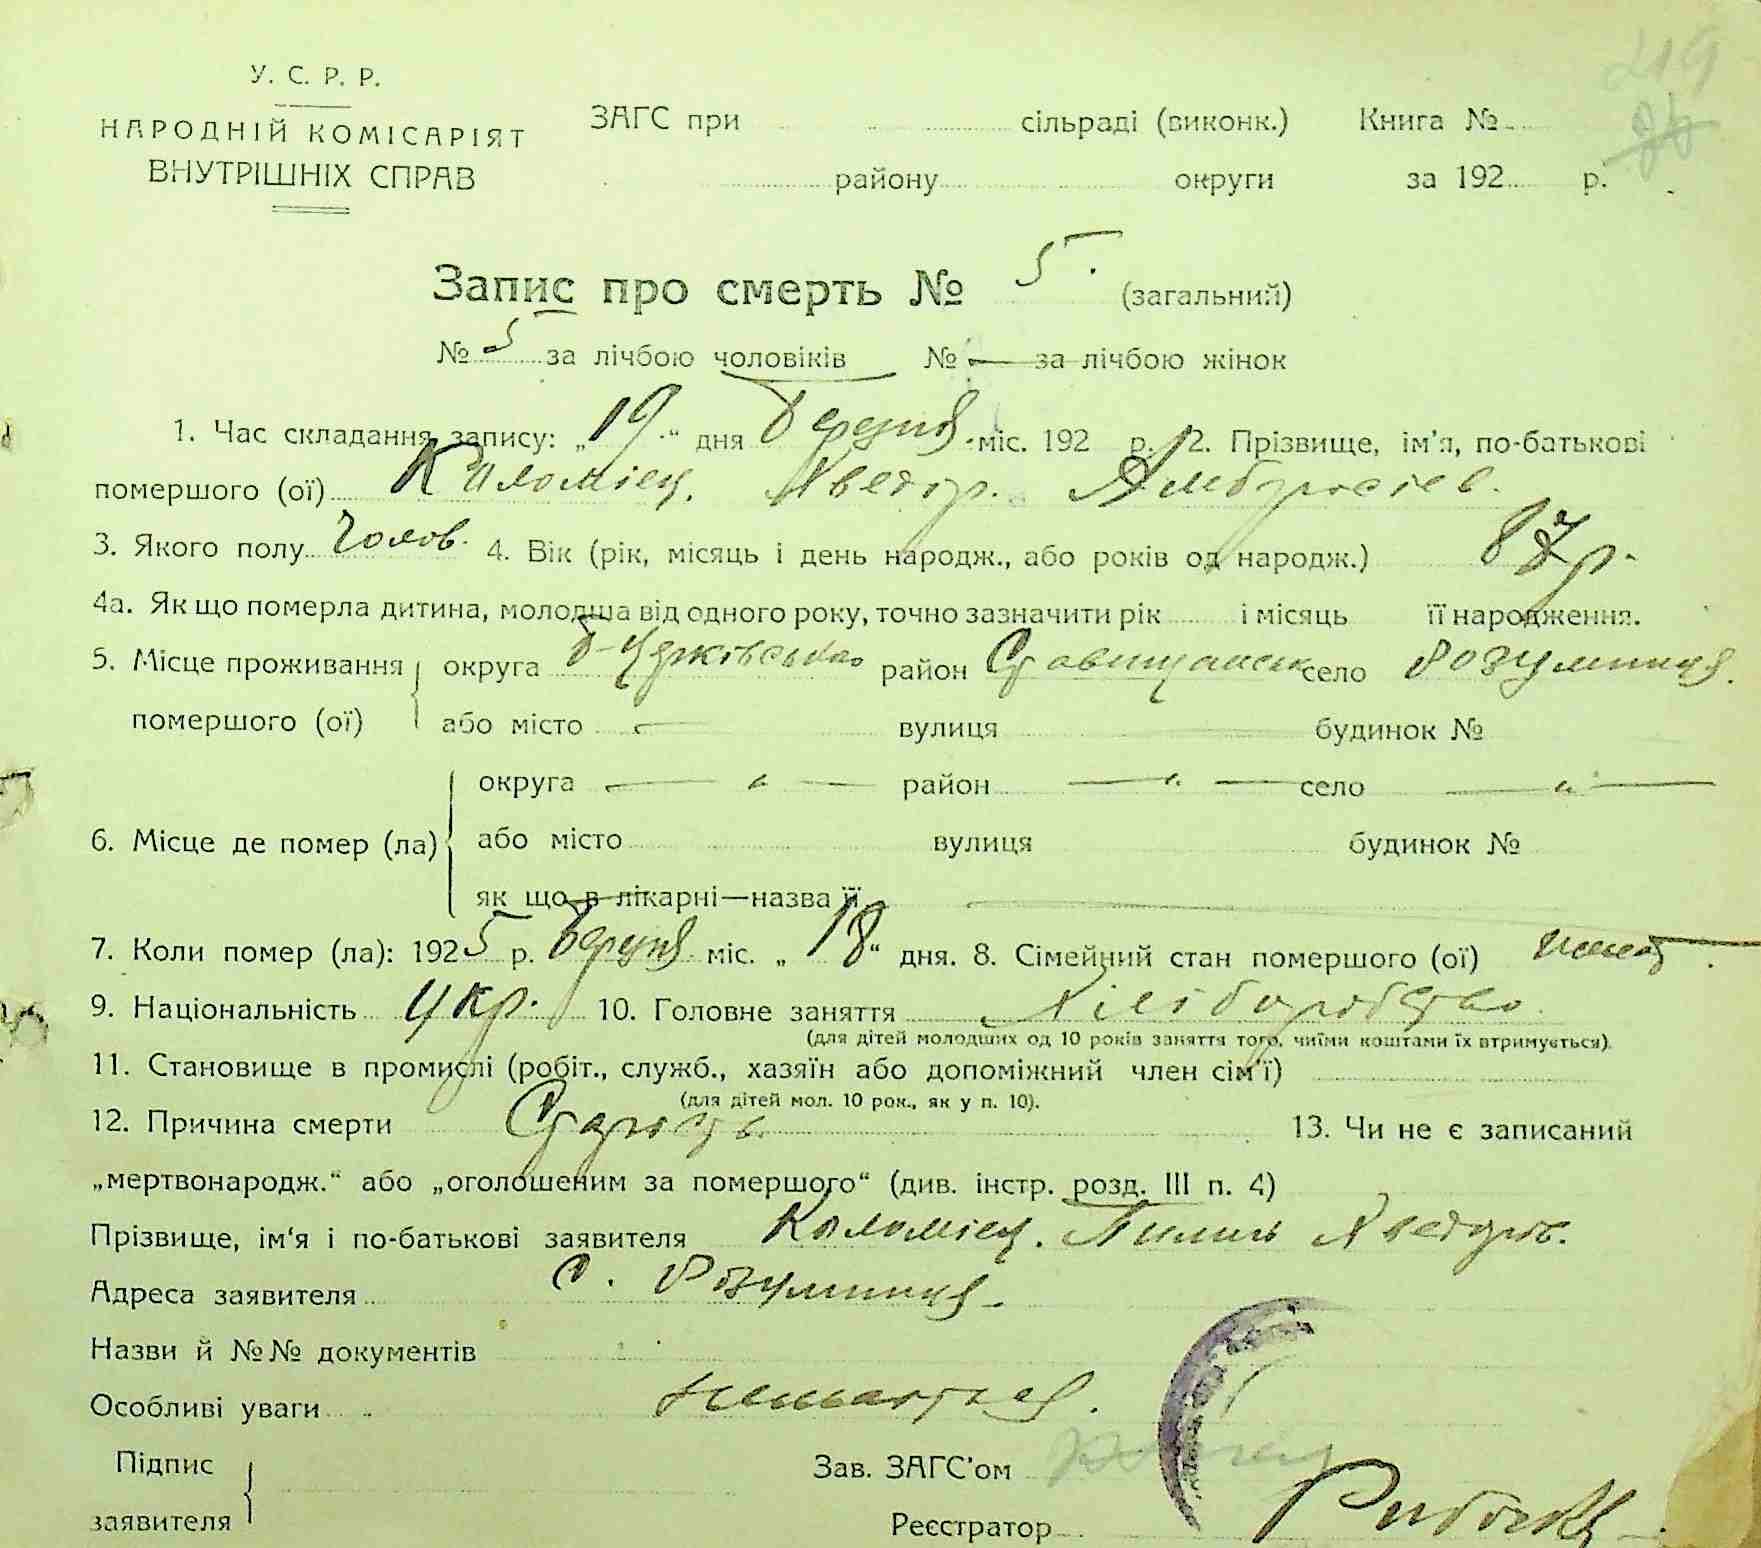 219
У. С. Р. Р.
НАРОДНІЙ КОМІСАРІЯТ
ВНУТРІШНІХ СПРАВ
ЗАГС при сільраді (виконк.) Книга №
району округи за 192 р.
Запис про смерть № 5. (загальний)
№ 5 за лічбою чоловіків № — за лічбою жінок
1. Час складання запису: „19“ дня березня міс. 192 р. 2. Прізвище, ім'я, по-батькові
помершого (ої) Коломієц. Хведір. Амбросіев.
3. Якого полу Чолов. 4. Вік (рік, місяць і день народж., або років од народж.) 87 р.
4а. Як що померла дитина, молодша від одного року, точно зазначити рік і місяць її народження.
5. Місце проживання округа Б-Церківська район Ставищанськ село Розумниця.
помершого (ої) або місто — вулиця будинок №
округа — „ — район — „ — село — „ —
6. Місце де помер (ла) або місто вулиця будинок №
як що в лікарні—назва її
7. Коли помер (ла): 1925 р. березня міс. „18“ дня. 8. Сімейний стан помершого (ої)
9. Національність укр. 10. Головне заняття Хліборобство
(для дітей молодших од 10 років заняття того, чиїми коштами їх втримується).
11. Становище в промислі (робіт., служб., хазяїн або допоміжний член сім'ї)
(для дітей мол. 10 рок., як у п. 10).
12. Причина смерти Старість. 13. Чи не є записаний
„мертвонародж.“ або „оголошеним за помершого“ (див. інстр. розд. III п. 4)
Прізвище, ім'я і по-батькові заявителя Коломієц. Пилип Хведорів.
Адреса заявителя с. Розумниця.
Назви й №№ документів
Особливі уваги
Підпис Зав. ЗАГС'ом
заявителя Реєстратор